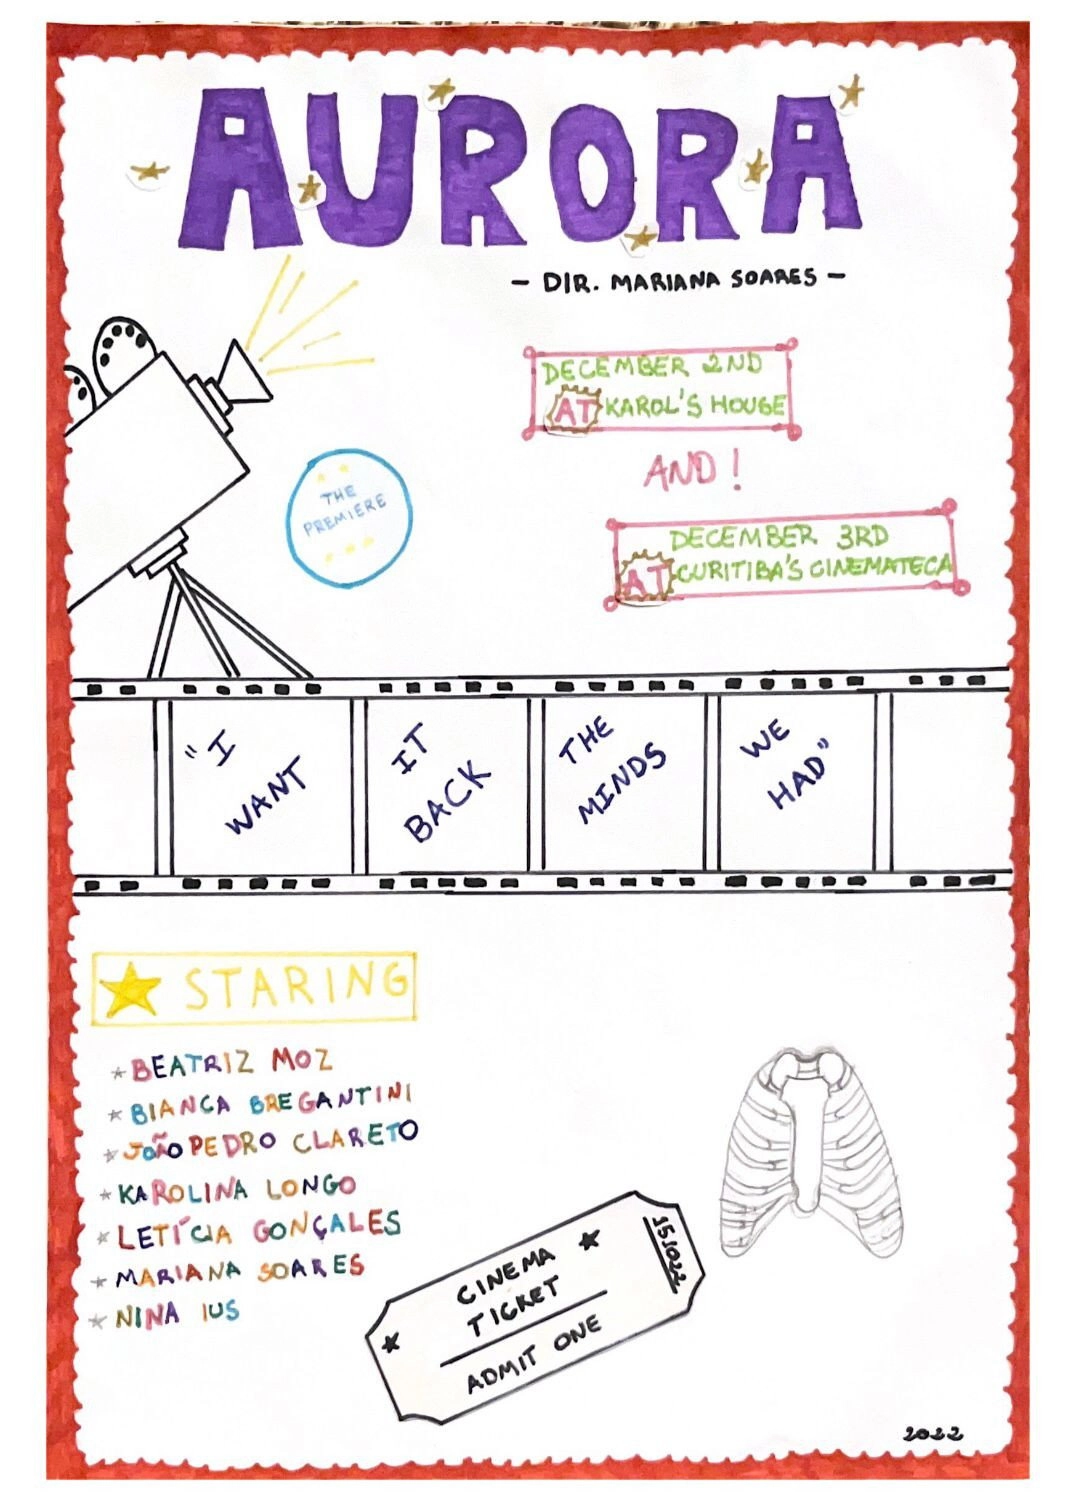 AURORA
- DIR. MARIANA SOARES -
DECEMBER 2ND
AT KAROL'S HOUSE
AND!
DECEMBER 3RD
AT CURITIBA'S CINEMATECA
THE
PREMIERE
"I
WANT
IT
BACK
THE
MINDS
WE
HAD"
STARING
BEATRIZ MOZ
BIANCA BREGANTINI
JOÃO PEDRO CLARETO
KAROLINA LONGO
LETÍCIA GONÇALES
MARIANA SOARES
NINA IUS
CINEMA
TICKET
ADMIT ONE
151022
2022